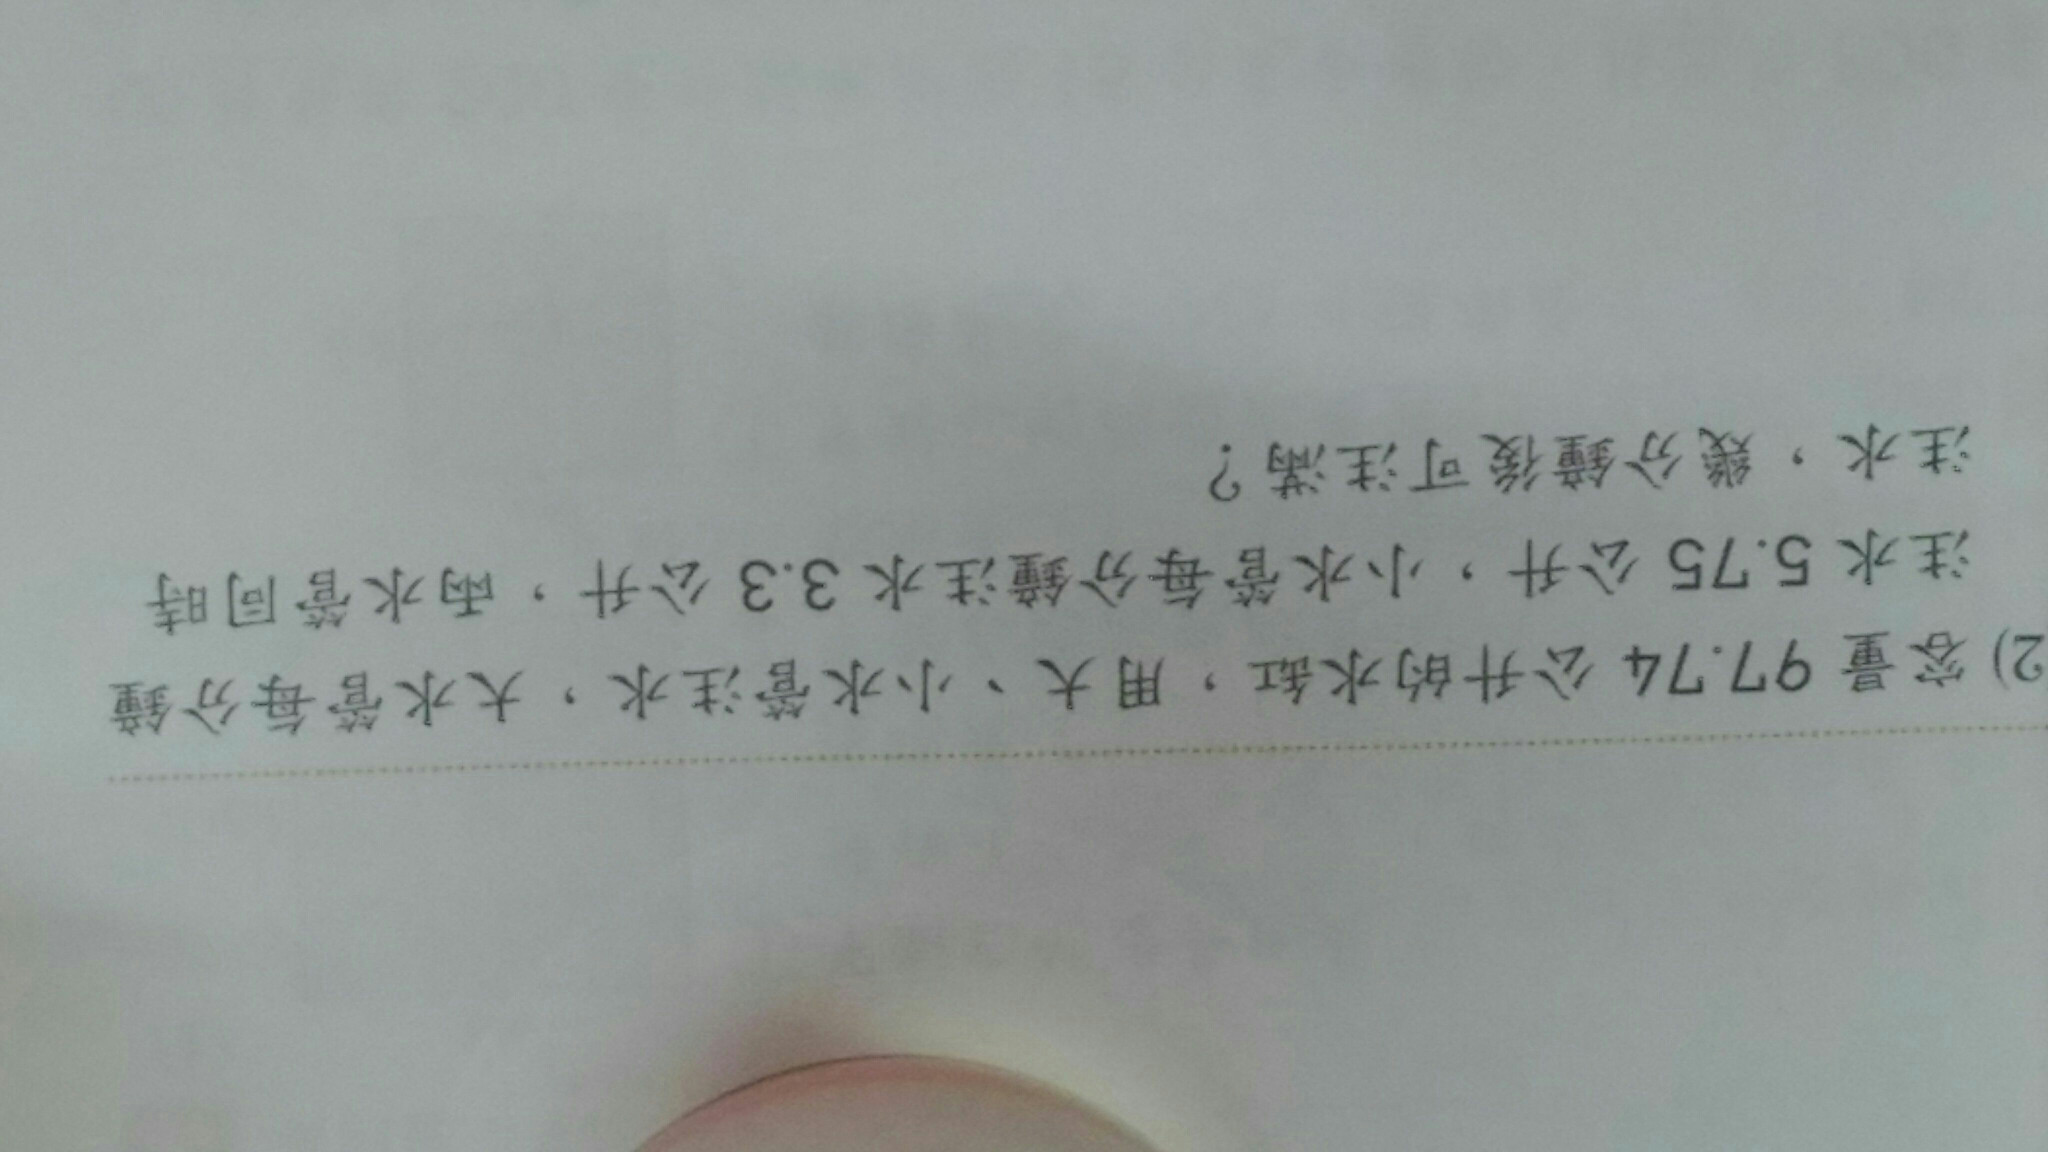 2) 容量 97.74 公升的水缸，用大、小水管注水，大水管每分鐘
注水 5.75 公升，小水管每分鐘注水 3.3 公升，兩水管同時
注水，幾分鐘後可注滿？